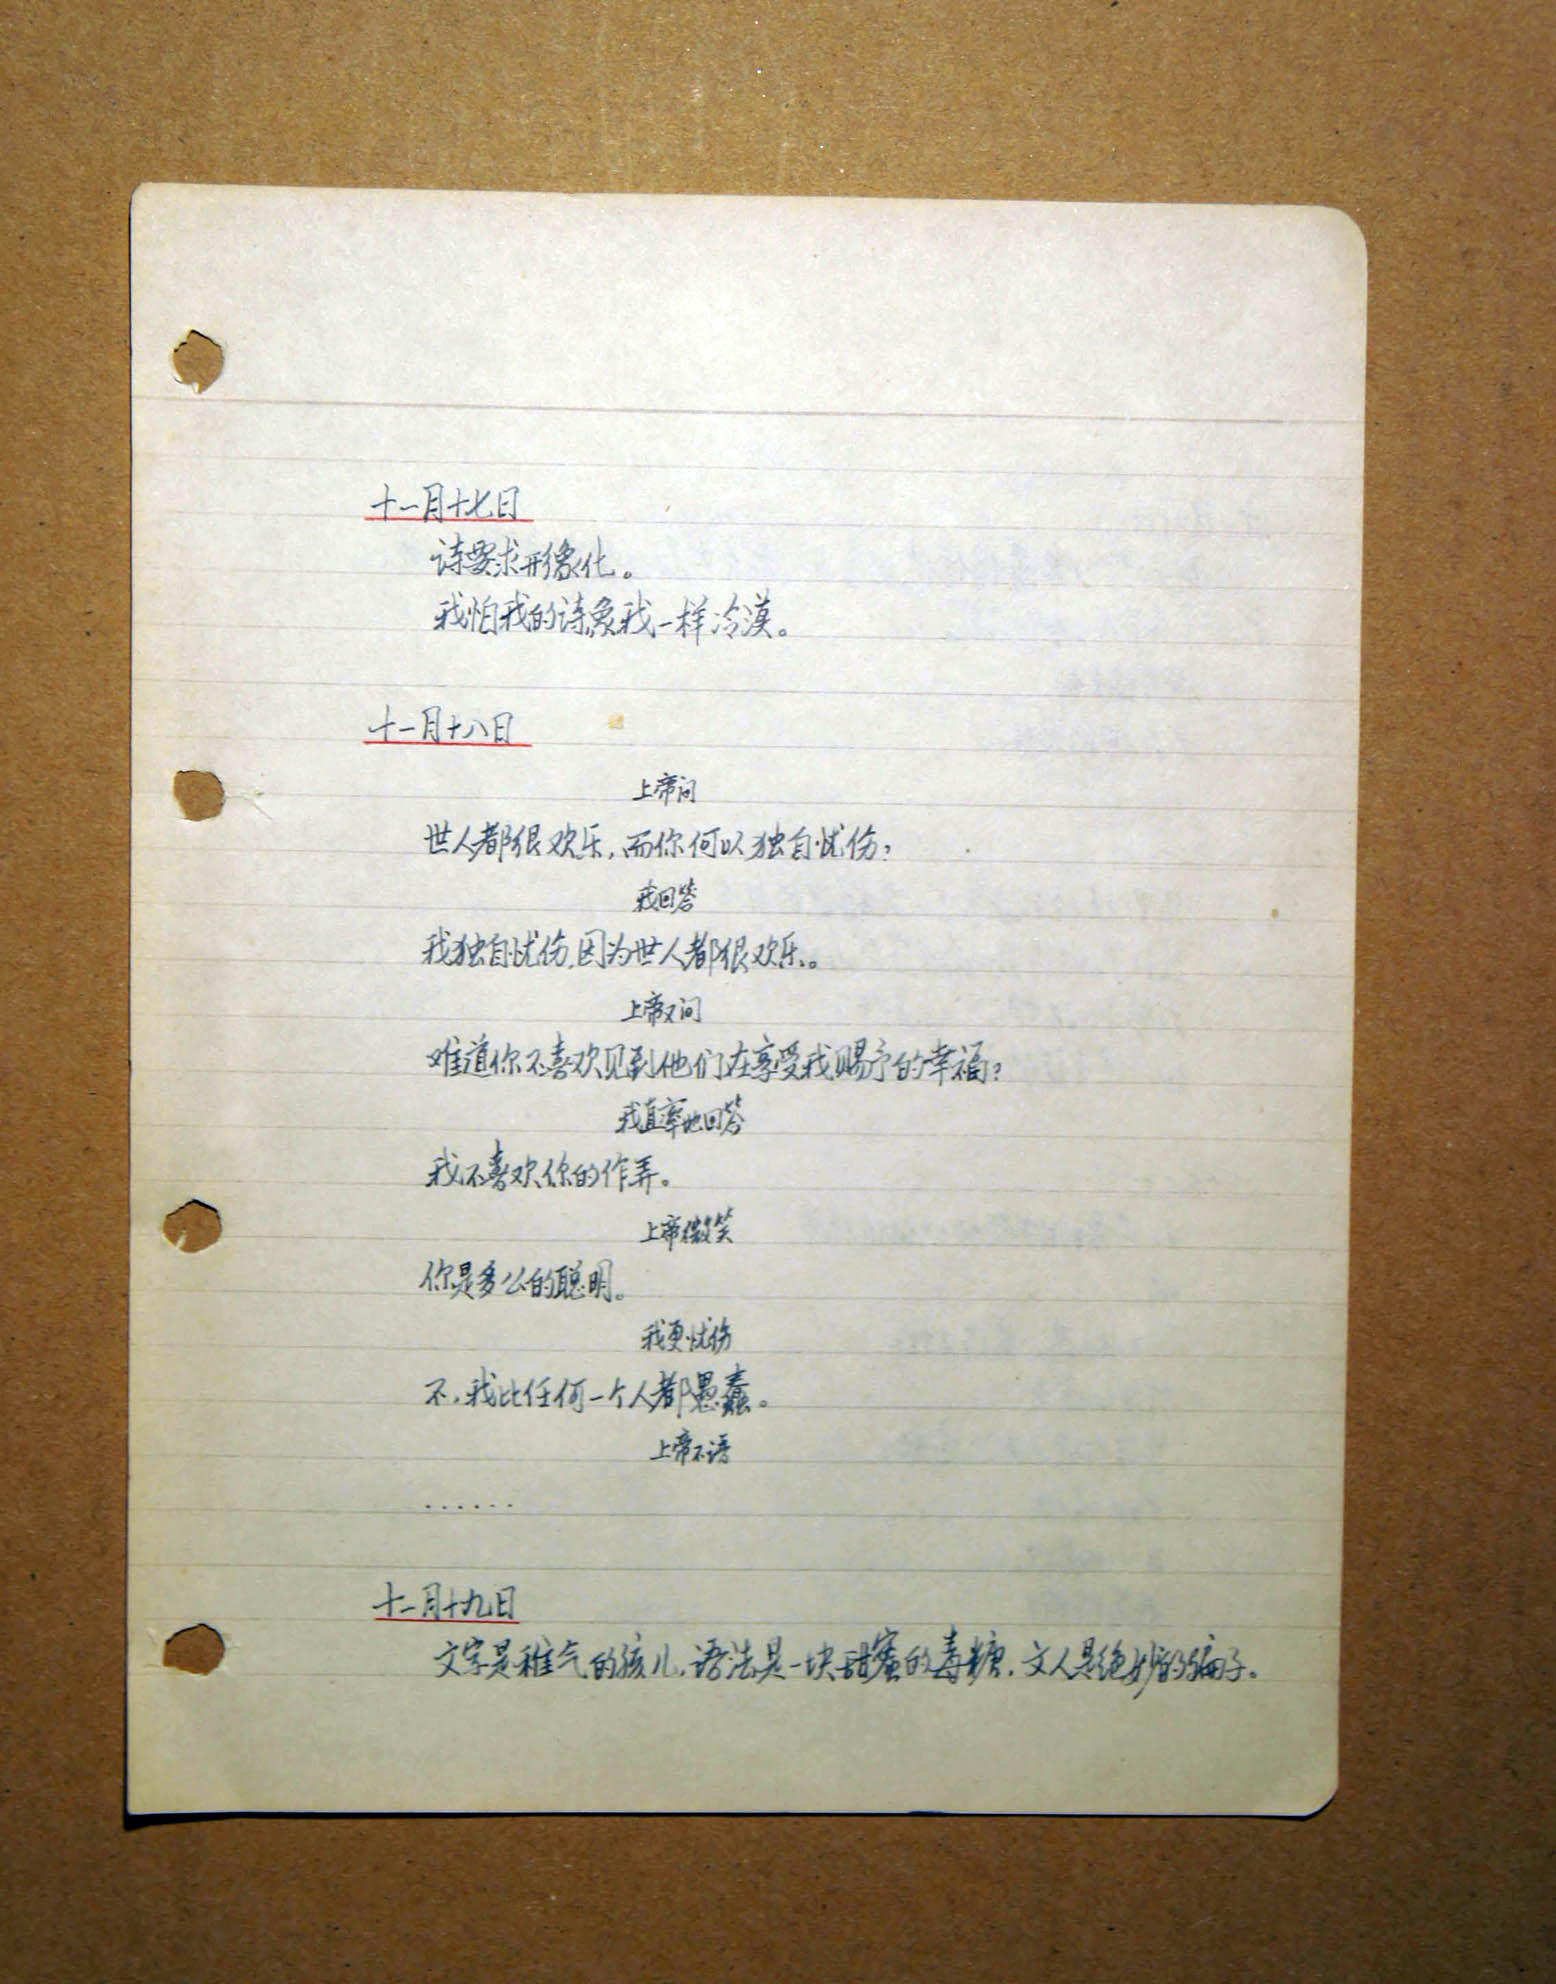 十一月十七日
诗要求形像化。
我怕我的诗象我一样冷漠。
十一月十八日
上帝问
世人都很欢乐，而你何以独自忧伤？
我回答
我独自忧伤，因为世人都很欢乐。
上帝又问
难道你不喜欢见到他们在享受我赐予的幸福？
我直率地回答
我不喜欢你的作弄。
上帝微笑
你是多么的聪明。
我更忧伤
不，我比任何一个人都愚蠢。
上帝不语
······
十一月十九日
文字是稚气的孩儿，语法是一块甜蜜的毒糖，文人是绝妙的骗子。